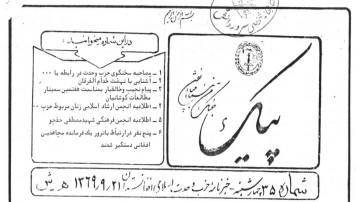 در این شماره میخوانید:
ــ مصاحبه سخنگوی حزب وحدت در رابطه با ...
۲ ــ آشنایی با نهضت خدام الفرقان
۳ ــ پیام نجیب وخالقیار بمناسبت هفتمین سمینار مطالعات کوشانیان
۴ ــ اطلاعیه انجمن ارشاد اسلامی زنان مربوط حزب ...
۵ ــ اطلاعیه انجمن فرهنگی شهید مصطفی حقجو
۶ ــ پنج نفر درارتباط باترور یک فرمانده مجاهدین افغانی دستگیر شدند
پیک
شماره ۳۵ چهارشنبه - خبرنامه حزب وحدت اسلامی افغانستان ۱۳۶۹،۹،۲۱ هـ ش